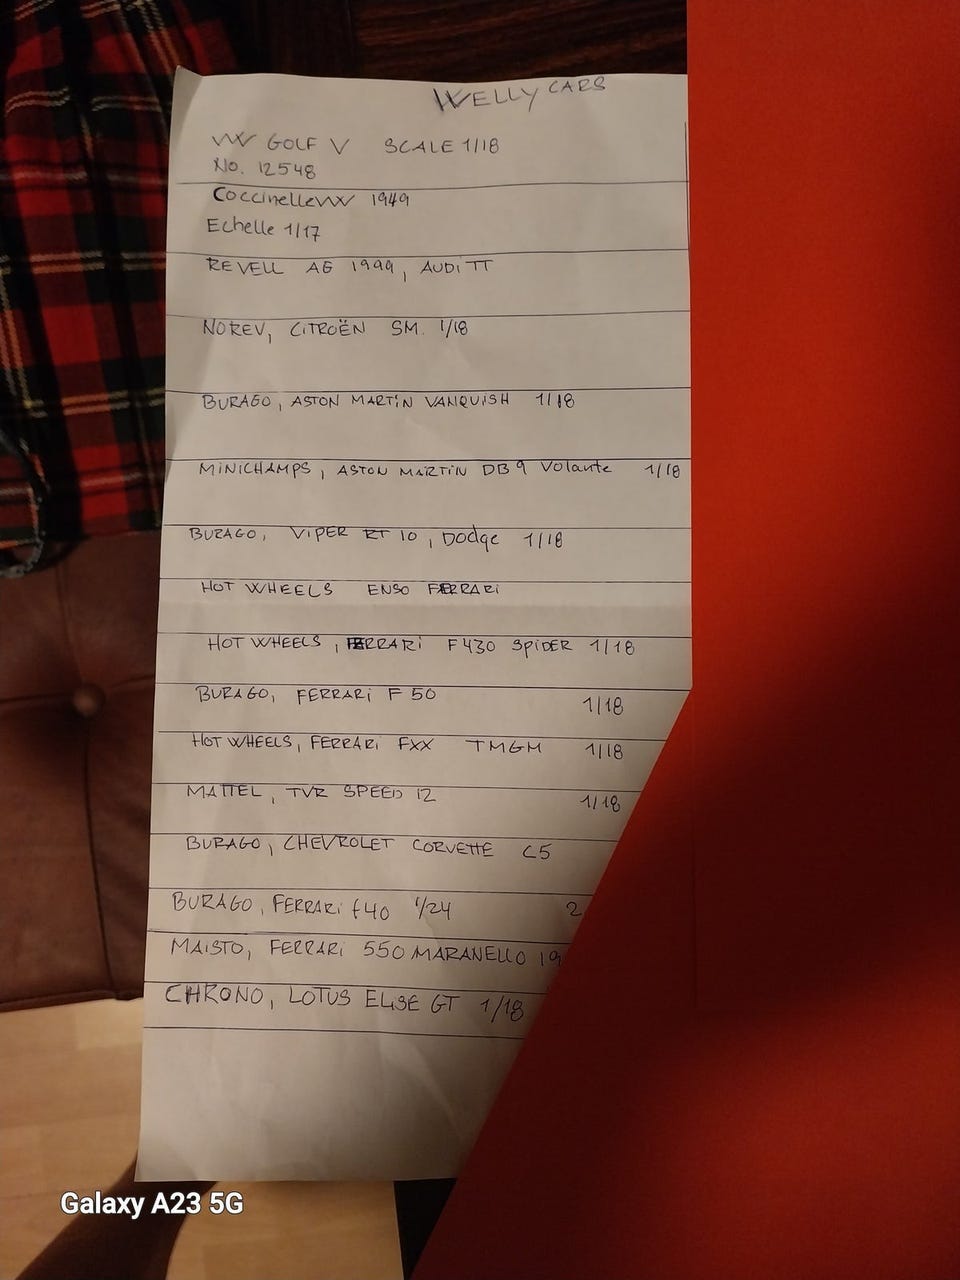 WELLY CARS
VW GOLF V SCALE 1/18
No. 12548
Coccinelle VW 1949
Echelle 1/17
REVELL AG 1999, AUDI TT
NOREV, CITROËN SM. 1/18
BURAGO, ASTON MARTIN VANQUISH 1/18
MINICHAMPS, ASTON MARTIN DB9 Volante 1/18
BURAGO, VIPER RT 10, Dodge 1/18
HOT WHEELS ENSO FERRARI
HOT WHEELS, FERRARI F430 SPIDER 1/18
BURAGO, FERRARI F 50 1/18
HOT WHEELS, FERRARI FXX TMGM 1/18
MATTEL, TVR SPEED 12 1/18
BURAGO, CHEVROLET CORVETTE C5
BURAGO, FERRARI f40 1/24 2
MAISTO, FERRARI 550 MARANELLO 19
CHRONO, LOTUS ELISE GT 1/18
Galaxy A23 5G